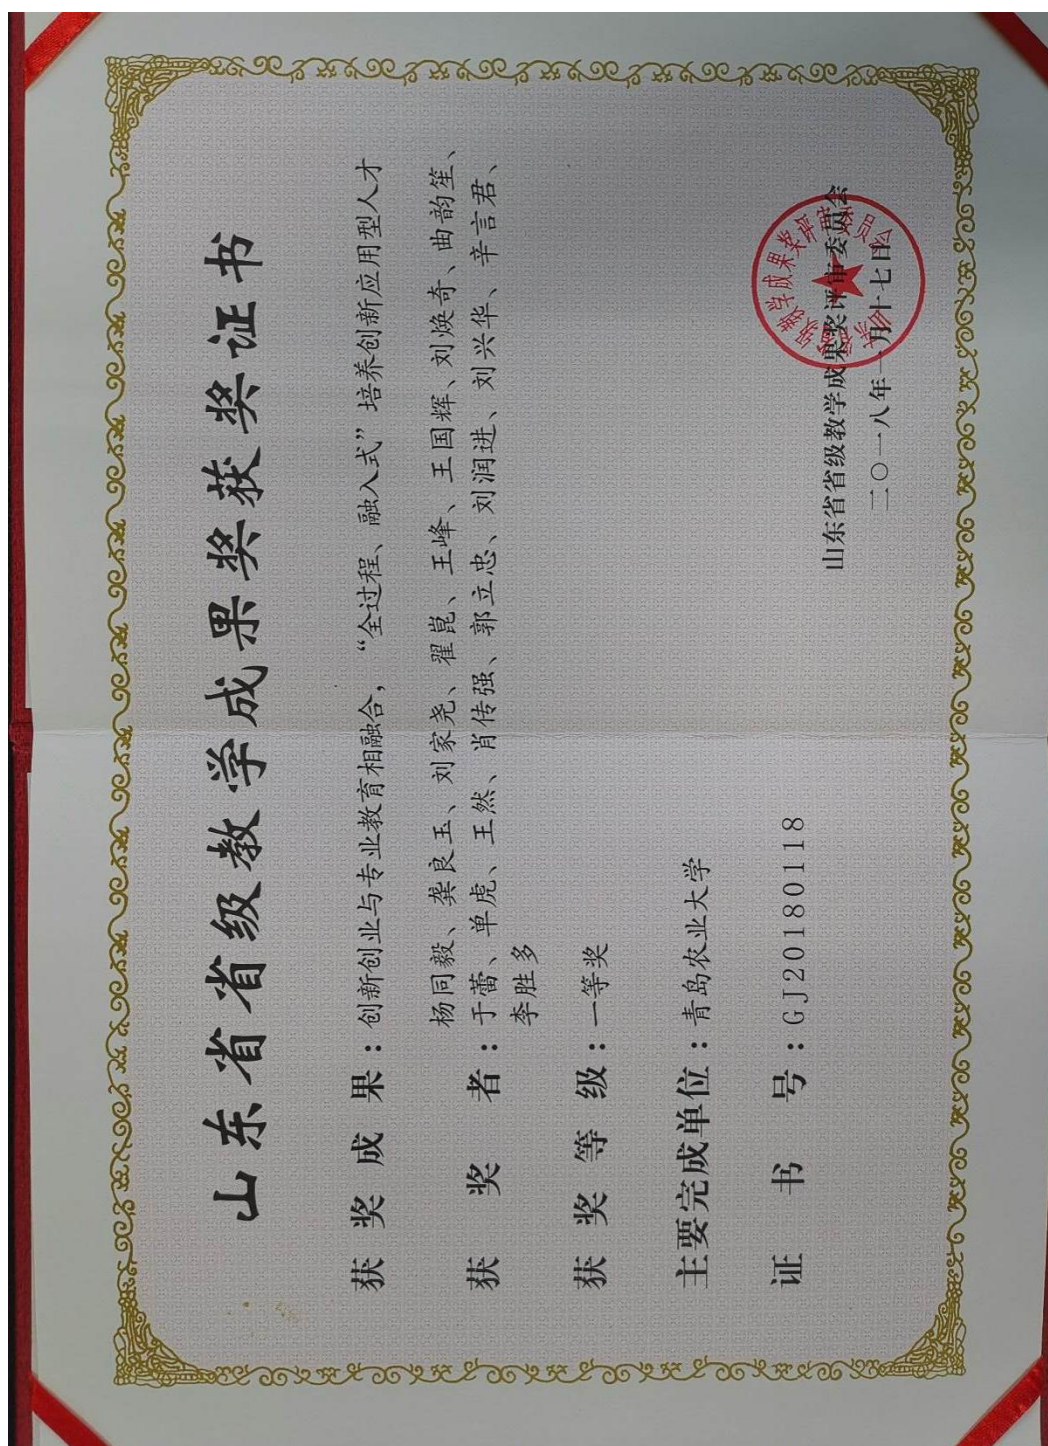 山东省省级教学成果奖获奖证书
获奖成果：创新创业与专业教育相融合，“全过程、融入式”培养创新应用型人才
杨同毅、龚良玉、刘家尧、翟崑、王峰、王国辉、刘焕奇、曲韵笙、
获奖者：于蕾、单虎、王然、肖传强、郭立忠、刘润进、刘兴华、辛言君、
李胜多
获奖等级：一等奖
主要完成单位：青岛农业大学
证书号：GJ20180118
山东省省级教学成果奖评审委员会
二〇一八年一月十七日